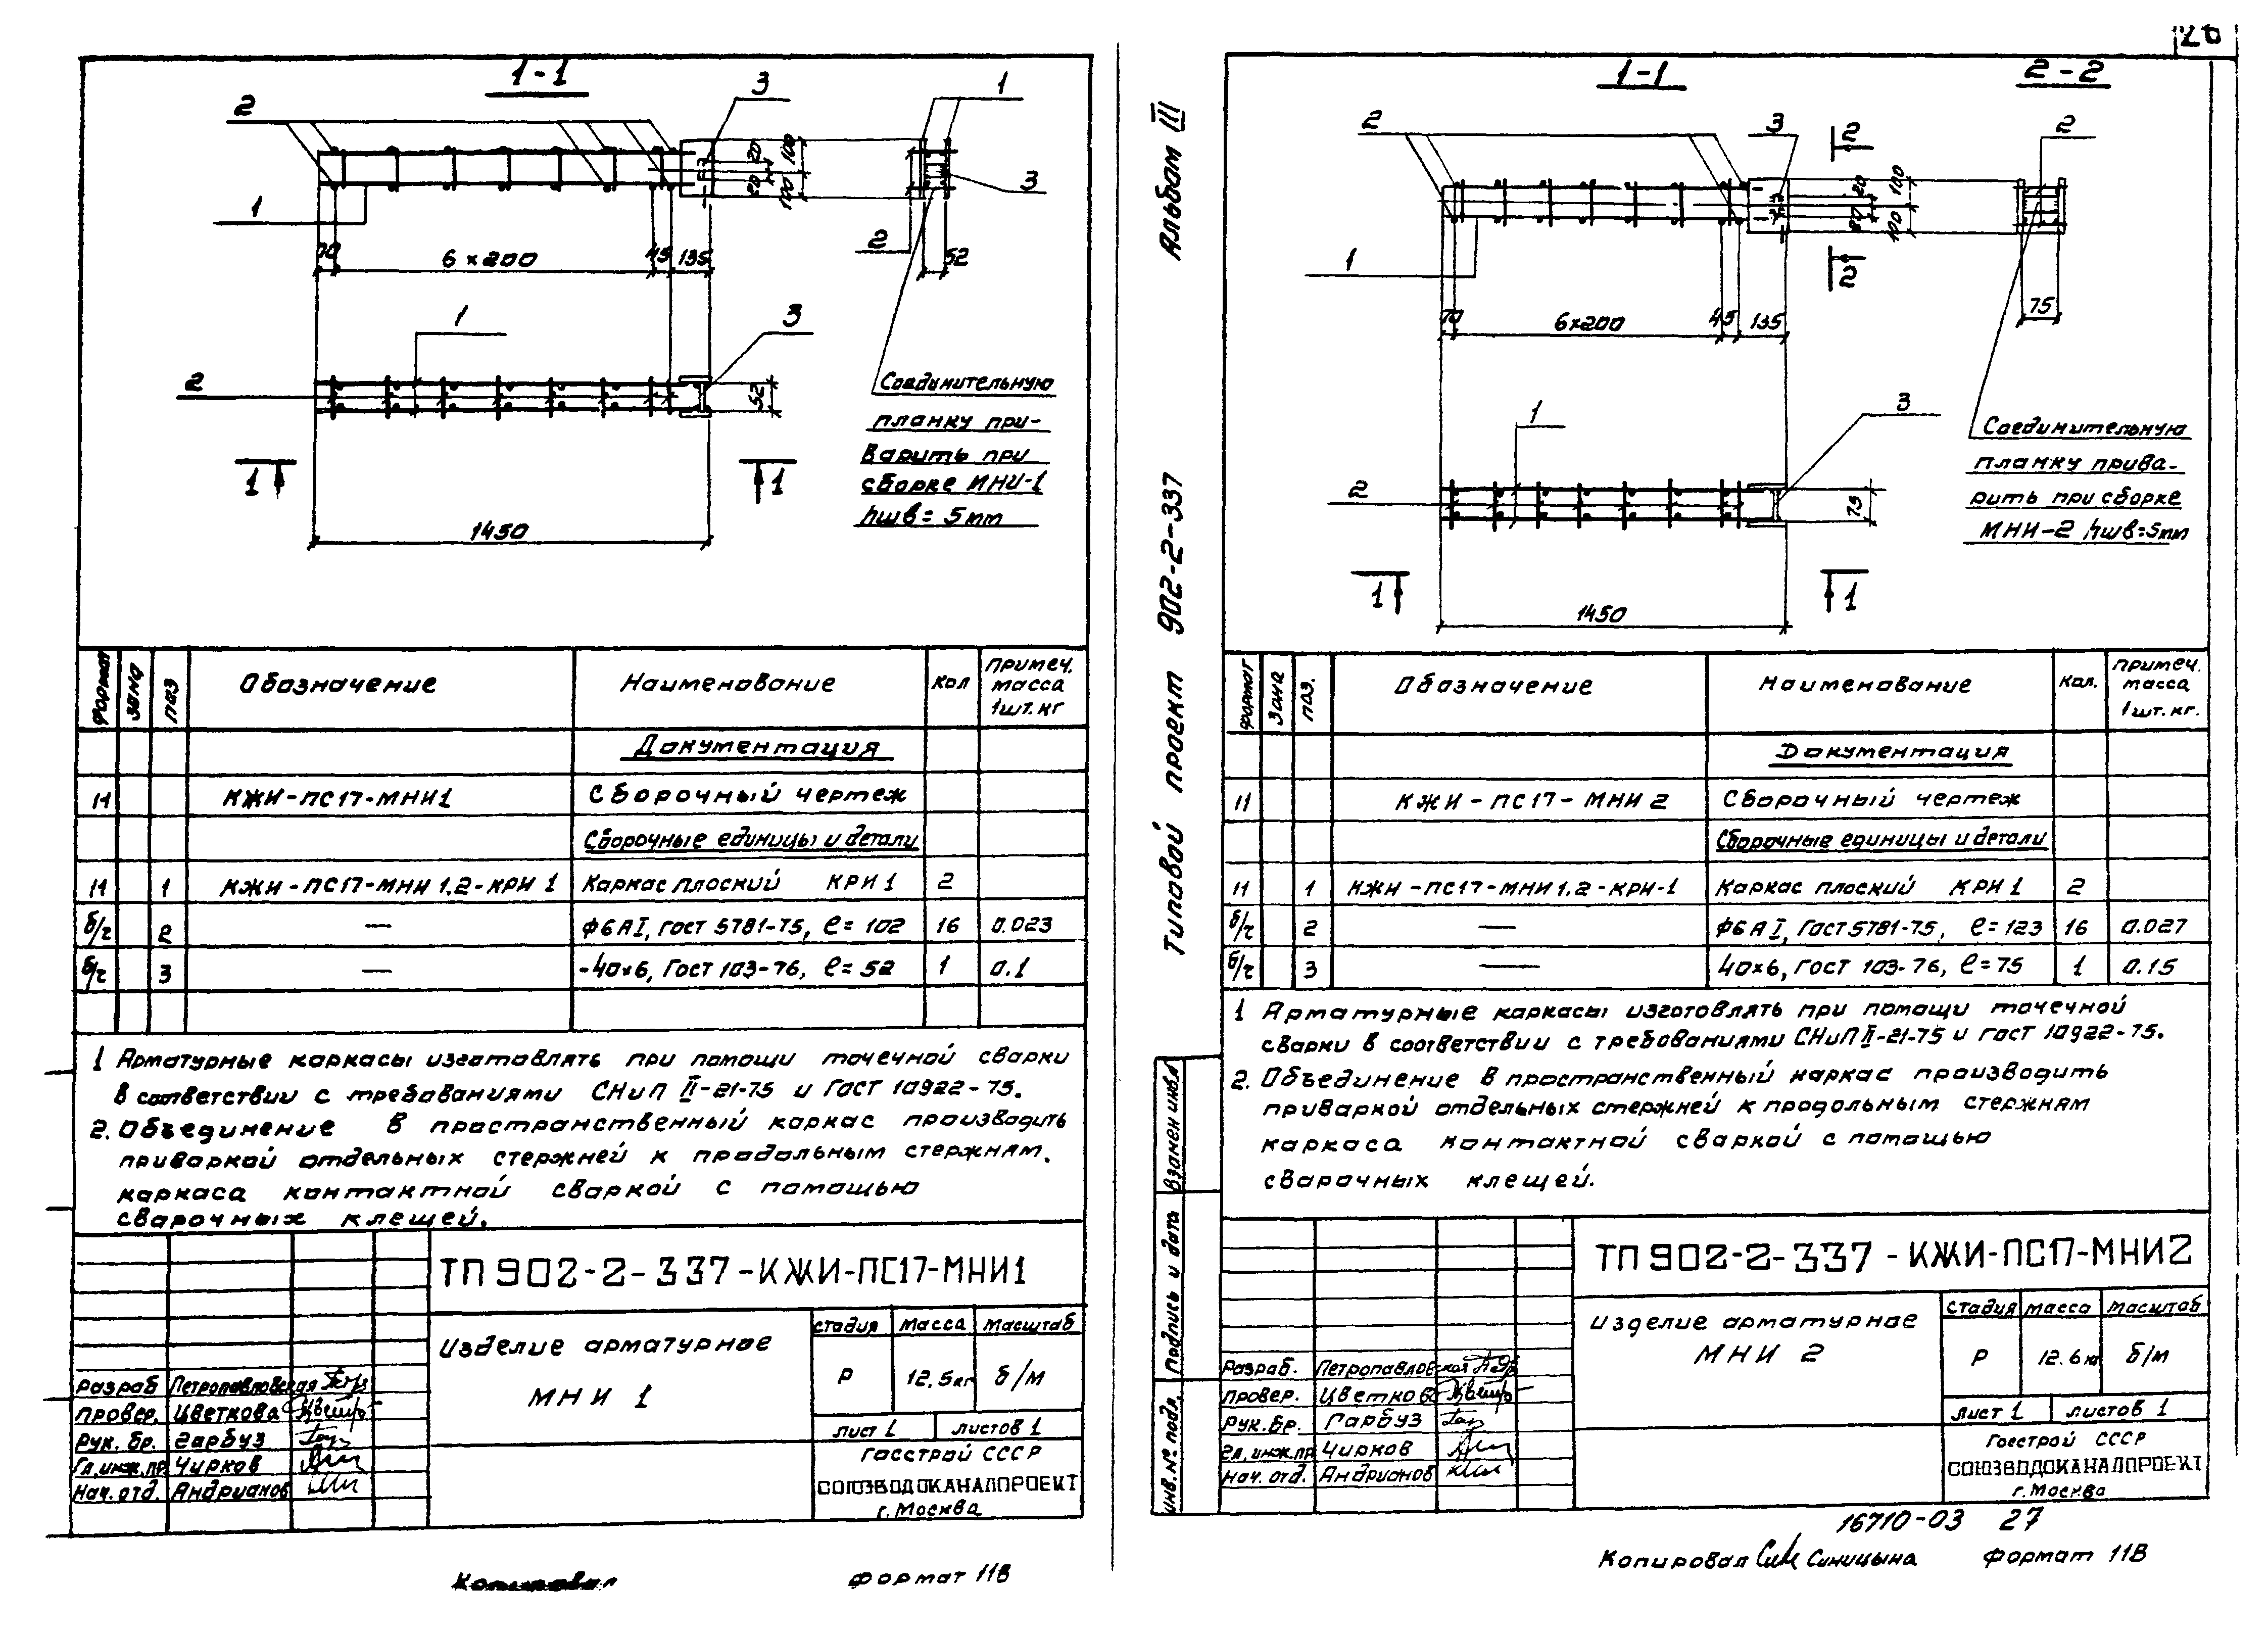 1-1
2
3
1
3
20
100
20
100
1
2
70
6×200
45
135
52
1
3
2
52
Соединительную
планку при-
варить при
сборке МНИ-1
hшв= 5мм
1
1
1450
формат
зона
поз
Обозначение
Наименование
Кол
Примеч.
масса
1шт. кг
Документация
11 КЖИ-ПС17-МНИ1 Сборочный чертеж
Сборочные единицы и детали
11 1 КЖИ-ПС17-МНИ 1.2-КРИ 1 Каркас плоский КРИ 1 2
б/ч 2 — ф6АI, Гост 5781-75, ℓ= 102 16 0.023
б/ч 3 — -40×6, Гост 103-76, ℓ= 52 1 0.1
1 Арматурные каркасы изготовлять при помощи точечной сварки
в соответствии с требованиями СНиП II-21-75 и Гост 10922-75.
2. Объединение в пространственный каркас производить
приваркой отдельных стержней к продольным стержням.
каркаса контактной сваркой с помощью
сварочных клещей.
ТП 902-2-337-КЖИ-ПС17-МНИ1
Изделие арматурное
МНИ 1
стадия масса масштаб
Р 12.5кг б/м
лист 1 листов 1
Госстрой СССР
СОЮЗВОДОКАНАЛПРОЕКТ
г. Москва
Разраб Петропавловская
Провер. Цветкова
Рук. бр. Гарбуз
Гл. инж. пр. Чирков
Нач. отд. Андрианов
Копировал
Формат 11В
26
Альбом III
Типовой проект 902-2-337
1-1
2-2
2
3
2
2
20
100
100
1
2
70
6×200
45
135
75
1
3
2
75
Соединительную
планку прива-
рить при сборке
МНИ-2 hшв=5мм
1
1
1450
формат
Зона
поз.
Обозначение
Наименование
Кол.
примеч.
масса
1шт. кг.
Документация
11 КЖИ-ПС17-МНИ 2 Сборочный чертеж
Сборочные единицы и детали
11 1 КЖИ-ПС17-МНИ 1.2-КРИ-1 Каркас плоский КРИ 1 2
б/ч 2 — ф6АI, Гост 5781-75, ℓ=123 16 0.027
б/ч 3 — 40×6, Гост 103-76, ℓ=75 1 0.15
1 Арматурные каркасы изготовлять при помощи точечной
сварки в соответствии с требованиями СНиП II-21-75 и Гост 10922-75.
2. Объединение в пространственный каркас производить
приваркой отдельных стержней к продольным стержням
каркаса контактной сваркой с помощью
сварочных клещей.
Взамен инв.№
Подпись и дата
Инв. № подл.
ТП 902-2-337-КЖИ-ПС17-МНИ2
Изделие арматурное
МНИ 2
стадия масса масштаб
Р 12.6кг б/м
лист 1 листов 1
Госстрой СССР
СОЮЗВОДОКАНАЛПРОЕКТ
г. Москва
Разраб. Петропавловская
Провер. Цветкова
Рук. бр. Гарбуз
Гл. инж. пр Чирков
Нач. отд. Андрианов
16710-03 27
Копировал Синицына Формат 11В